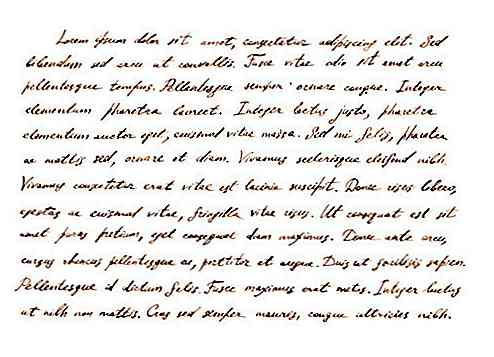 Lorem ipsum dolor sit amet, consectetur adipiscing elit. Sed
bibendum sed arcu ut convallis. Fusce vitae odio sit amet arcu
pellentesque tempus. Pellentesque semper ornare congue. Integer
elementum pharetra laoreet. Integer lectus justo, pharetra
elementum auctor eget, euismod vitae massa. Sed mi felis, pharetra
ac mattis sed, ornare et diam. Vivamus scelerisque eleifend nibh.
Vivamus consectetur erat vitae est lacinia suscipit. Donec risus libero,
egestas ac euismod vitae, fringilla vitae risus. Ut consequat est sit
amet purus pretium, eget consequat diam maximus. Donec ante arcu,
cursus rhoncus pellentesque ac, porttitor et augue. Duis ut facilisis sapien.
Pellentesque id dictum felis. Fusce maximus erat metus. Integer luctus
ut nibh non mattis. Cras sed semper mauris, congue ultricies nibh.